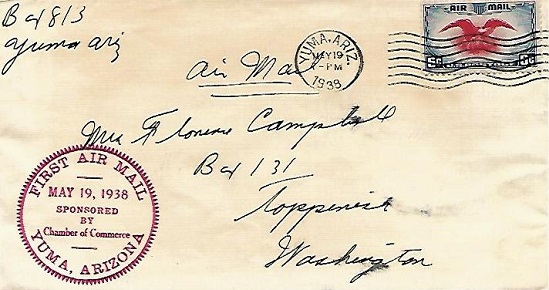 Box 813
Yuma Ariz
Air Mail
YUMA, ARIZ.
MAY 19
PM
1938
AIR MAIL
6¢ 6¢
Mrs Florence Campbell
Box 131
Toppenish
Washington
FIRST AIR MAIL
MAY 19, 1938
SPONSORED
BY
Chamber of Commerce
YUMA, ARIZONA